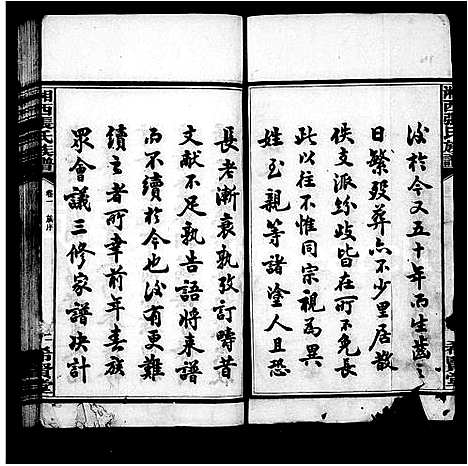 湘西張氏族譜
後於今又五十年而生齒之
日繁殁葬亦不少里居散
佚支派紛歧皆在所不免長
此以往不惟同宗視為異
姓至親等諸塗人且恐
長老漸衰孰攷訂疇昔
文献不足孰告語將來譜
而不續於今也後有更難
續之者所幸前年春族
眾會議三修家譜決計
湘西張氏族譜
卷一 族序
一
賢堂